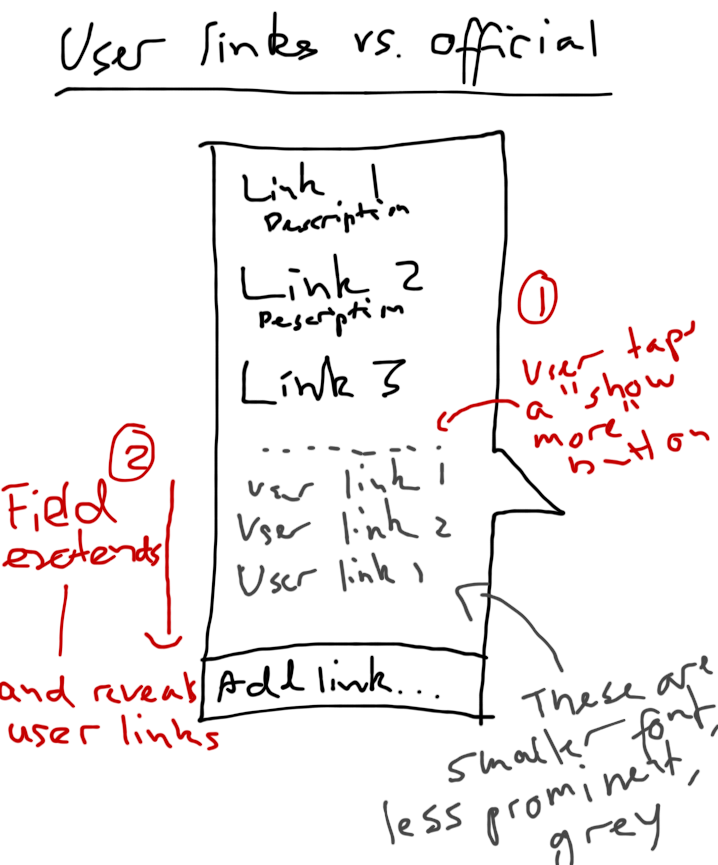 User links vs. official
Link 1
Description
Link 2
Description
Link 3
user link 1
User link 2
User link 1
Add link...
1
User taps
a "show
more"
button
2
Field
extends
and reveals
user links
These are
smaller font,
less prominent,
grey